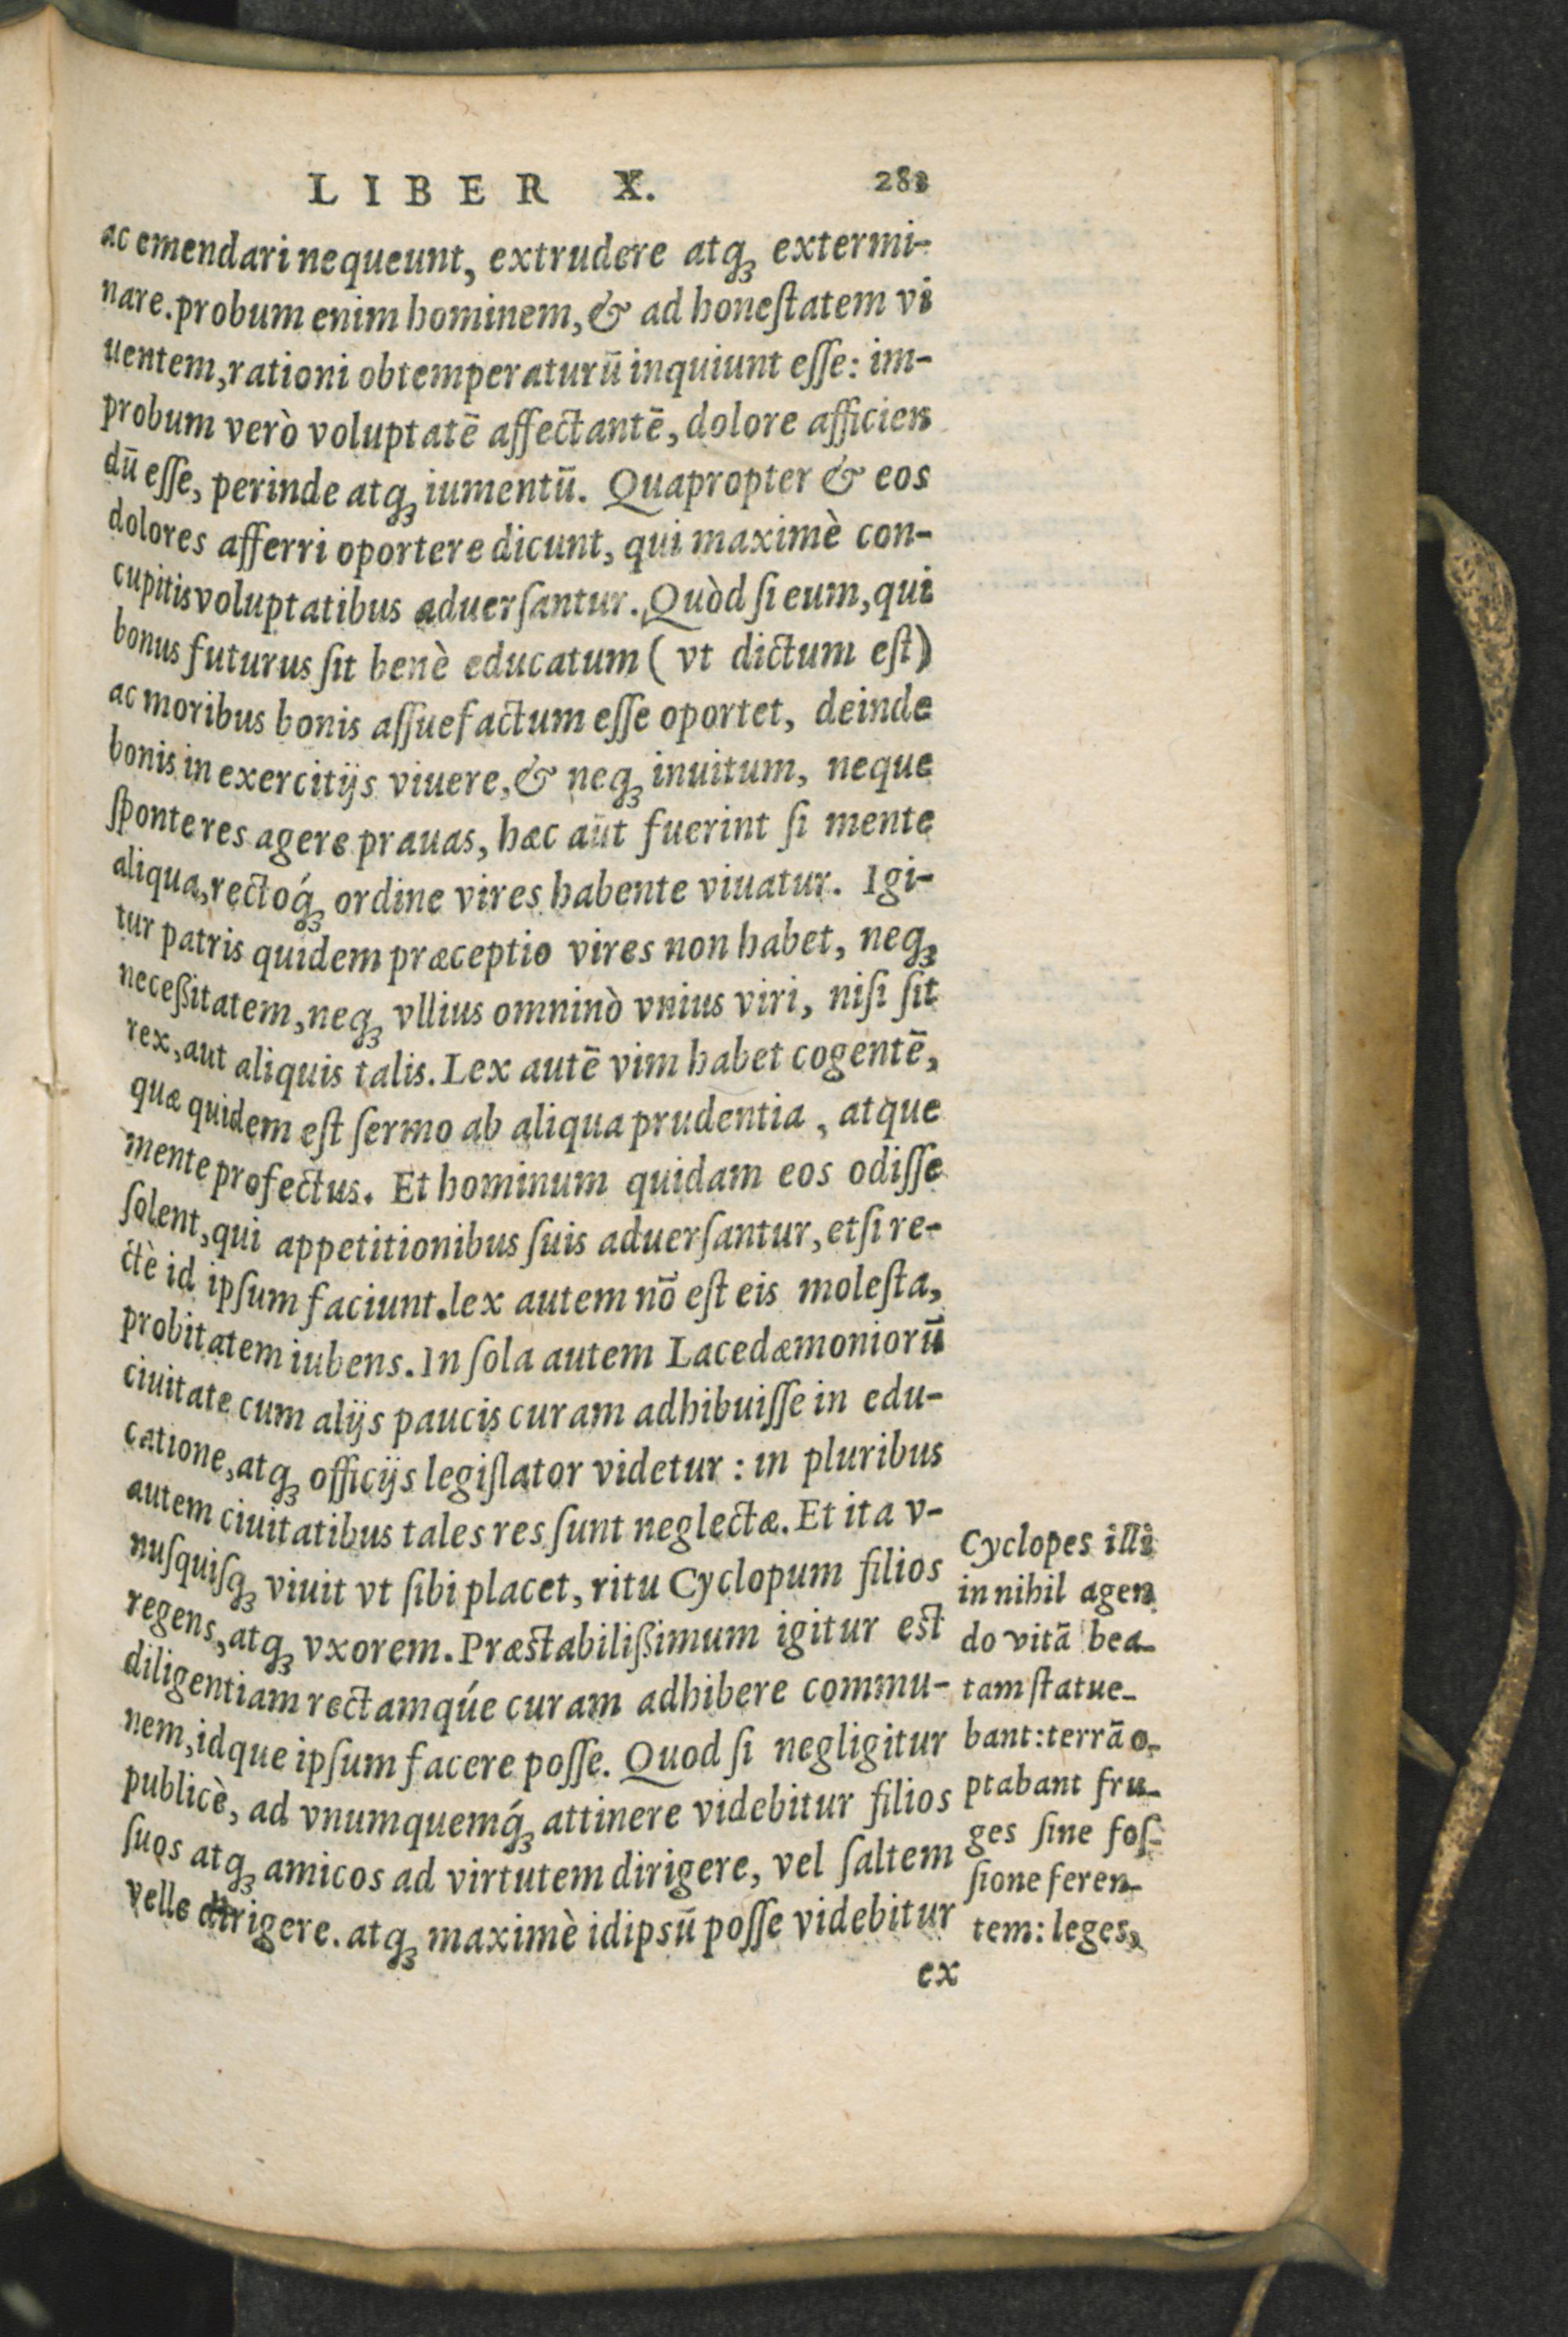 LIBER X. 283
ac emendari nequeunt, extrudere atq; extermi-
nare. probum enim hominem, & ad honeſtatem vi
uentem, rationi obtemperaturū inquiunt eſſe: im-
probum verò voluptatē affectantē, dolore afficien
dū eſſe, perinde atq; iumentū. Quapropter & eos
dolores afferri oportere dicunt, qui maximè con-
cupitis voluptatibus aduerſantur. Quòd ſi eum, qui
bonus futurus ſit benè educatum ( vt dictum eſt)
ac moribus bonis aſſuefactum eſſe oportet, deinde
bonis in exercitijs viuere, & neq; inuitum, neque
ſponte res agere prauas, hæc aūt fuerint ſi mente
aliqua, rectoq́; ordine vires habente viuatur. Igi-
tur patris quidem præceptio vires non habet, neq;
neceßitatem, neq; vllius omninò vnius viri, niſi ſit
rex, aut aliquis talis. Lex autē vim habet cogentē,
quæ quidem eſt ſermo ab aliqua prudentia, atque
mente profectus. Et hominum quidam eos odiſſe
ſolent, qui appetitionibus ſuis aduerſantur, etſi re-
ctè id ipſum faciunt. lex autem nō eſt eis moleſta,
probitatem iubens. In ſola autem Lacedæmoniorū
ciuitate cum alijs paucis curam adhibuiſſe in edu-
catione, atq; officijs legiſlator videtur: in pluribus
autem ciuitatibus tales res ſunt neglectæ. Et ita v-
nuſquiſq; viuit vt ſibi placet, ritu Cyclopum filios
regens, atq; vxorem. Præstabilißimum igitur est
diligentiam rectamq́ue curam adhibere commu-
nem, idque ipſum facere poſſe. Quod ſi negligitur
publicè, ad vnumquemq́; attinere videbitur filios
ſuos atq; amicos ad virtutem dirigere, vel ſaltem
velle dirigere. atq; maximè idipsū poſſe videbitur
ex
Cyclopes illi
in nihil agen
do vitā bea-
tam ſtatue-
bant: terrā o-
ptabant fru-
ges ſine foſ-
ſione feren-
tem: leges,